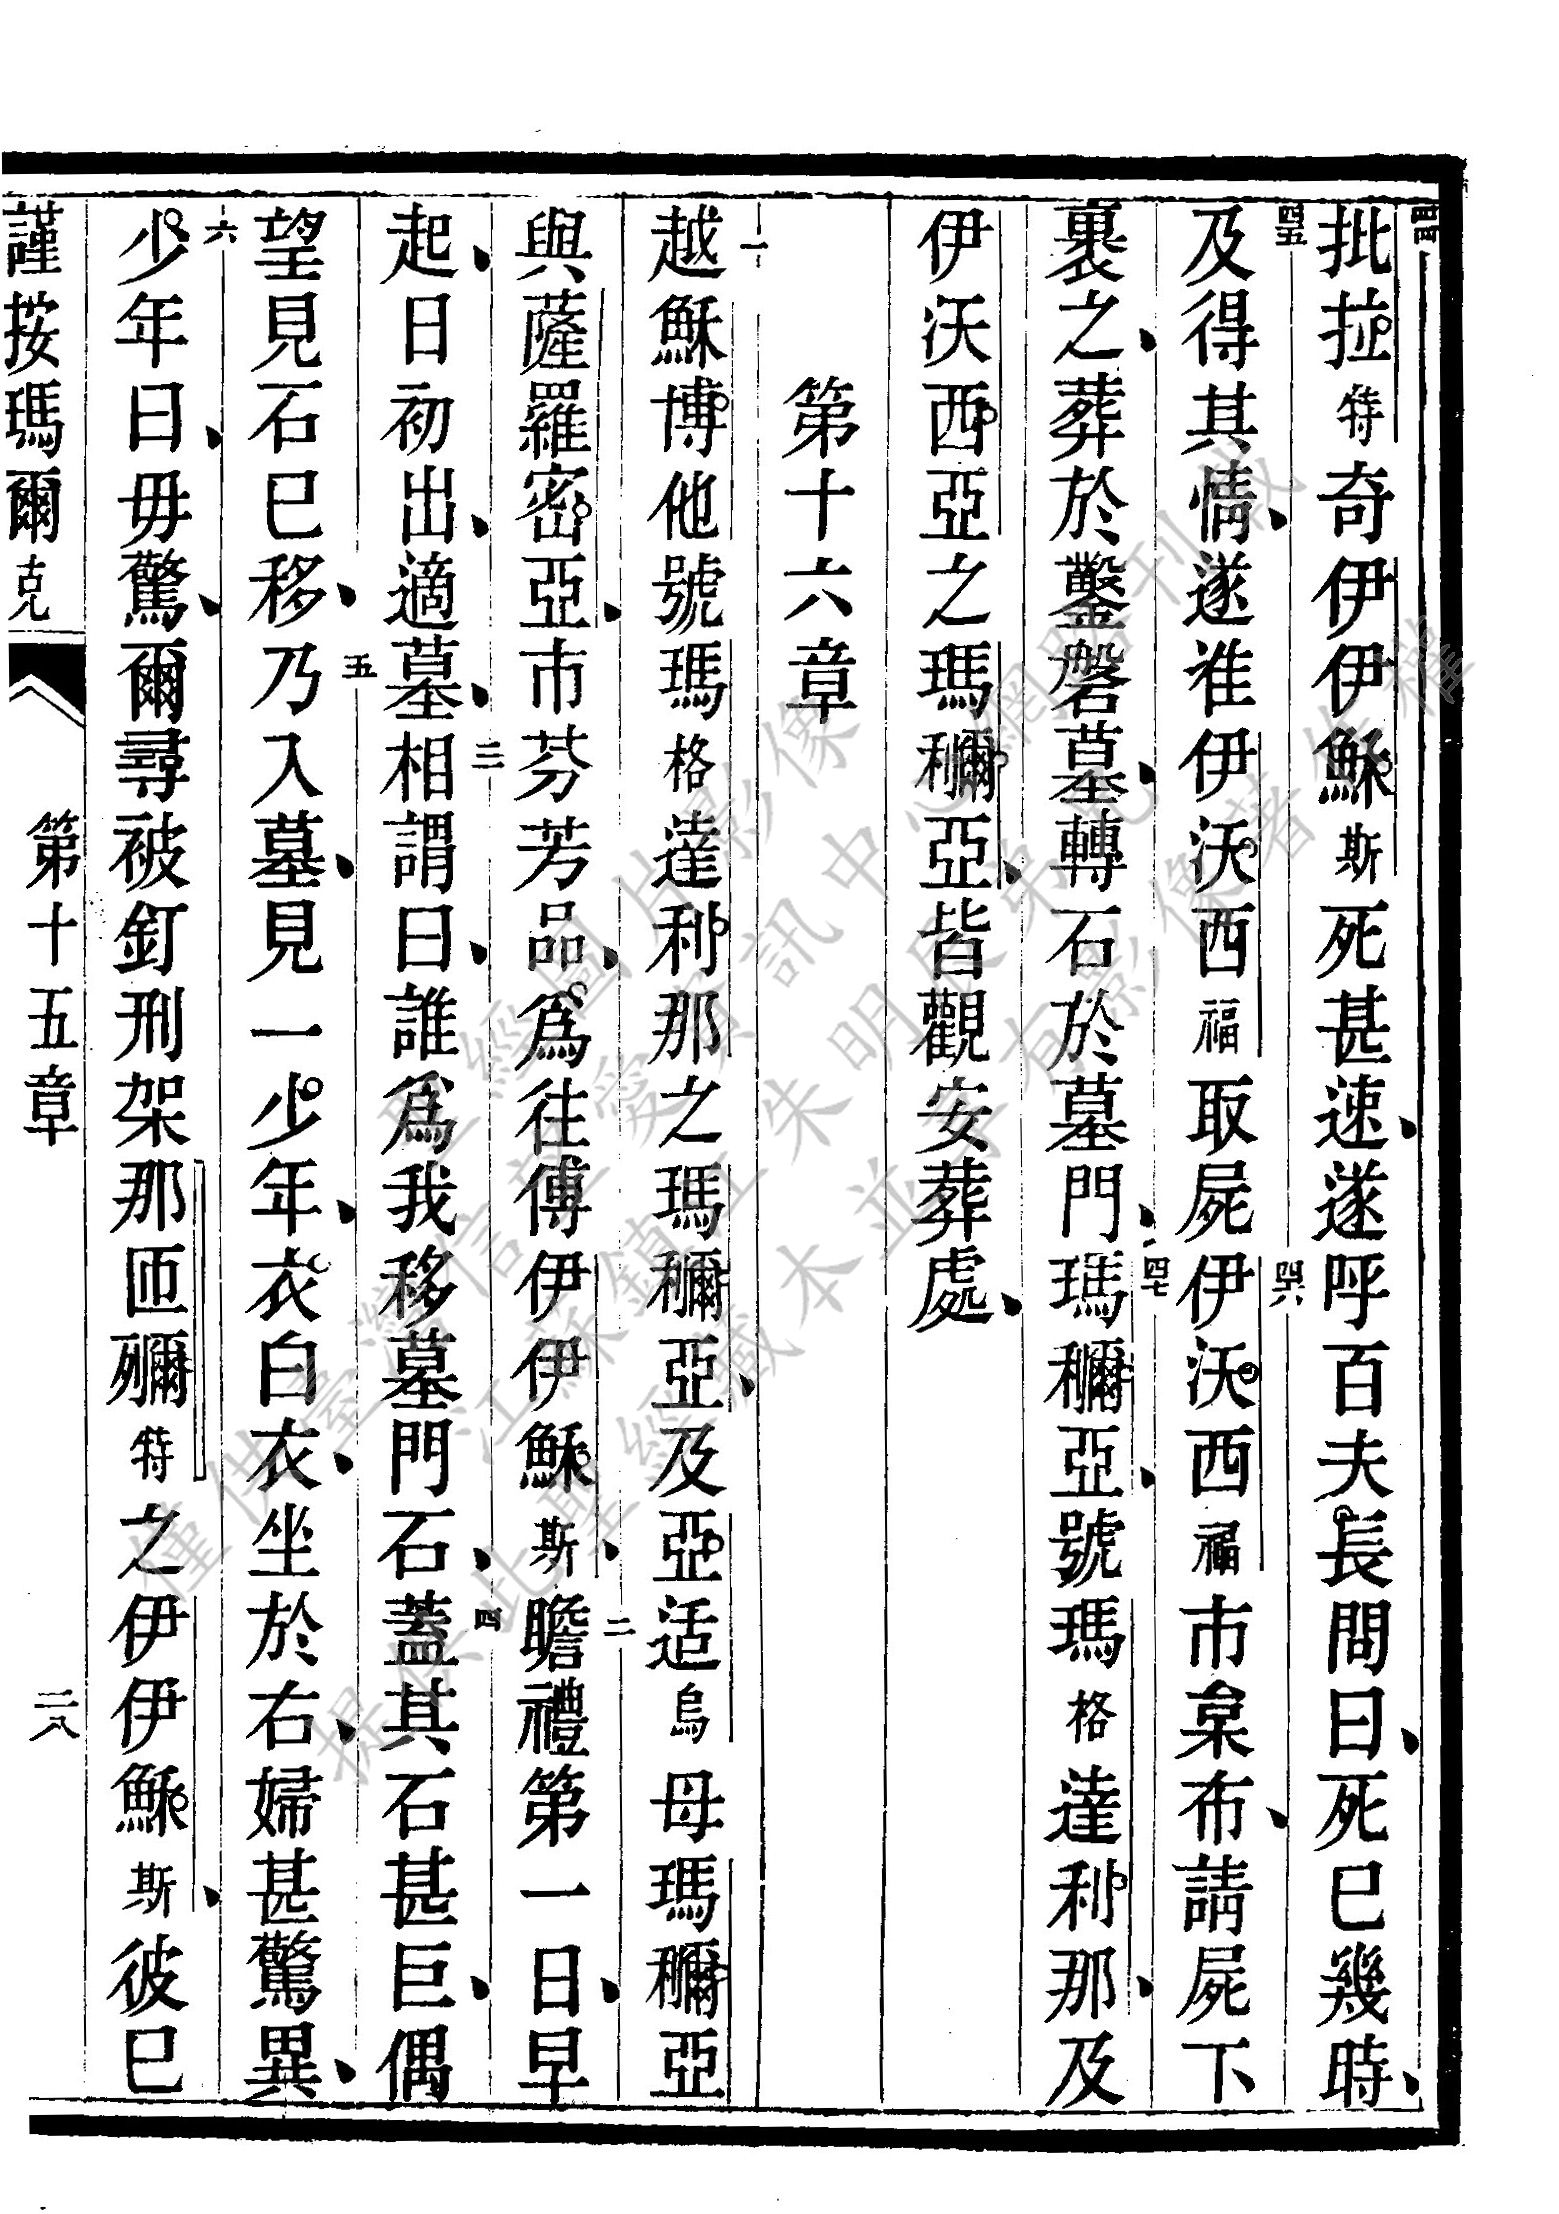 四四批拉特奇伊伊穌斯死甚速、遂呼百夫長問曰、死已幾時、
四五及得其情、遂准伊沃西福取屍四六伊沃西福市枲布、請屍下
裹之、葬於鑿磐墓、轉石於墓門、四七瑪穪亞、號瑪格達利那、及
伊沃西亞之瑪穪亞、皆觀安葬處、
第十六章
一越穌博他號瑪格達利那之瑪穪亞、及亞适烏母瑪穪亞
與薩羅密亞、市芬芳品、爲往傅伊伊穌斯、二瞻禮第一日、早
起、日初出、適墓、三相謂曰、誰爲我移墓門石、四蓋其石甚巨、偶
望見石已移、五乃入墓、見一少年、衣白衣、坐於右、婦甚驚異、
六少年曰、毋驚、爾尋被釘刑架那匝特之伊伊穌斯、彼已
謹按瑪爾克 第十五章 二八
聖經圖片影像
僅供臺灣信望愛資訊中心網路刊載
江蘇鎮江朱明良弟兄
提供此聖經藏本並享有影像著作權